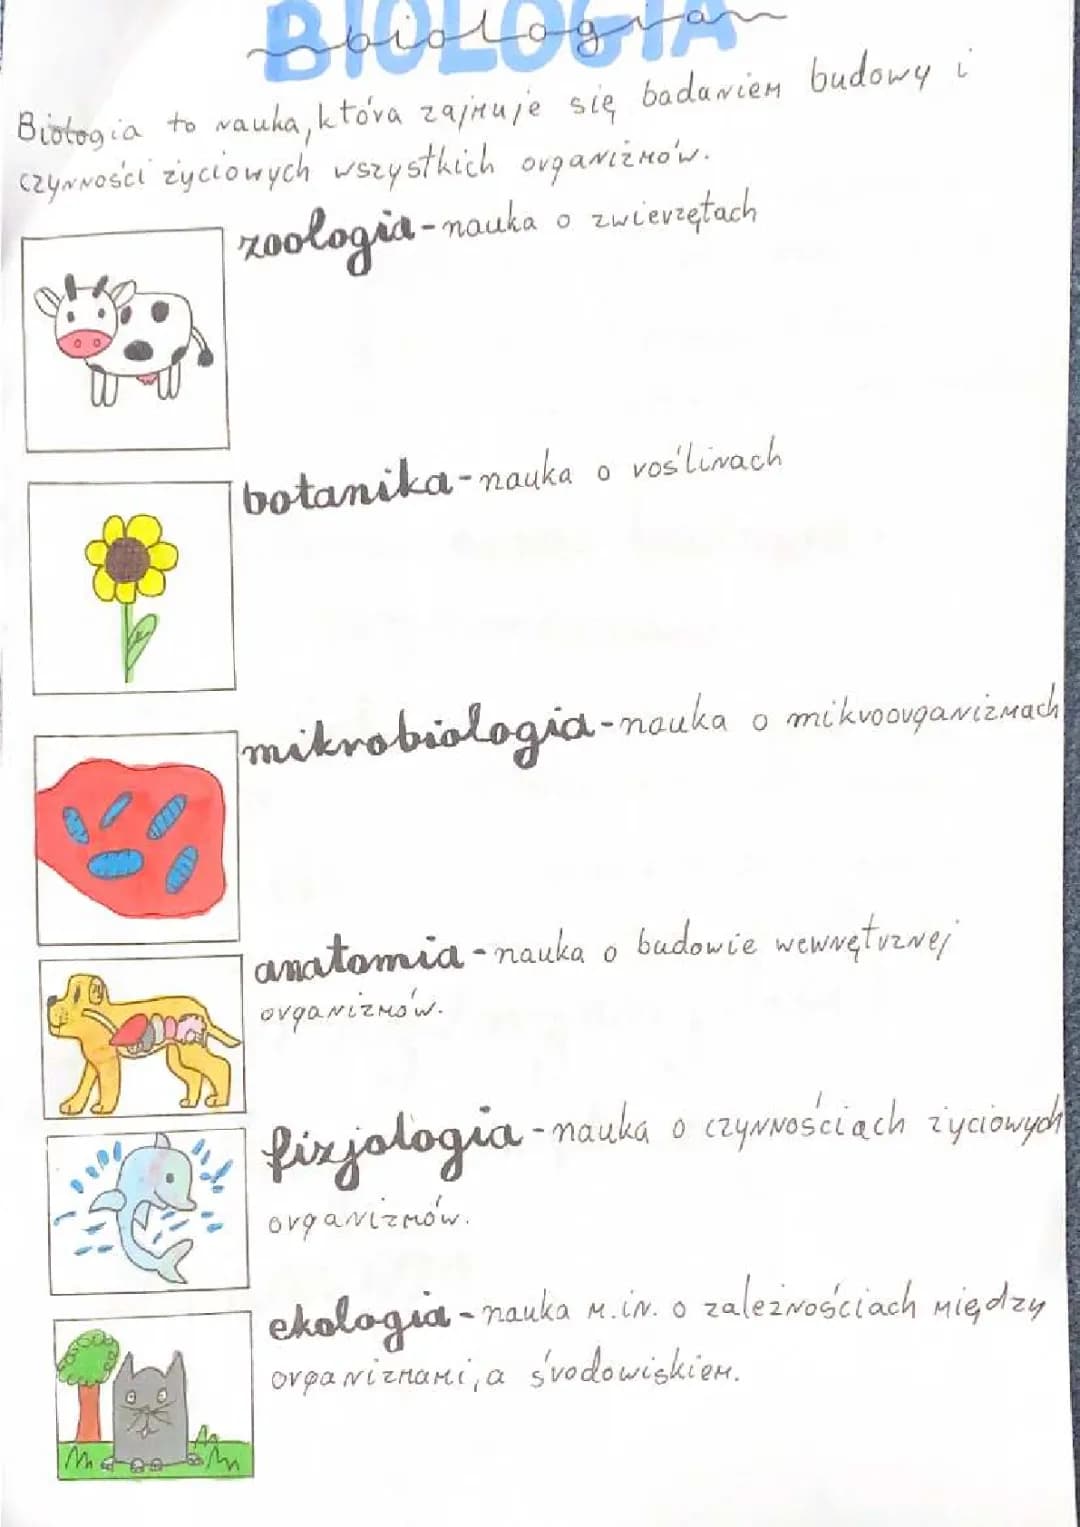 BIOLOGIA
biologia
Biologia to nauka, która zajmuje się badaniem budowy i
czynności życiowych wszystkich organizmów.
zoologia - nauka o zwierzętach
botanika - nauka o roślinach
mikrobiologia - nauka o mikroorganizmach
anatomia - nauka o budowie wewnętrznej
organizmów.
fizjologia - nauka o czynnościach życiowych
organizmów.
ekologia - nauka m.in. o zależnościach między
organizmami, a środowiskiem.